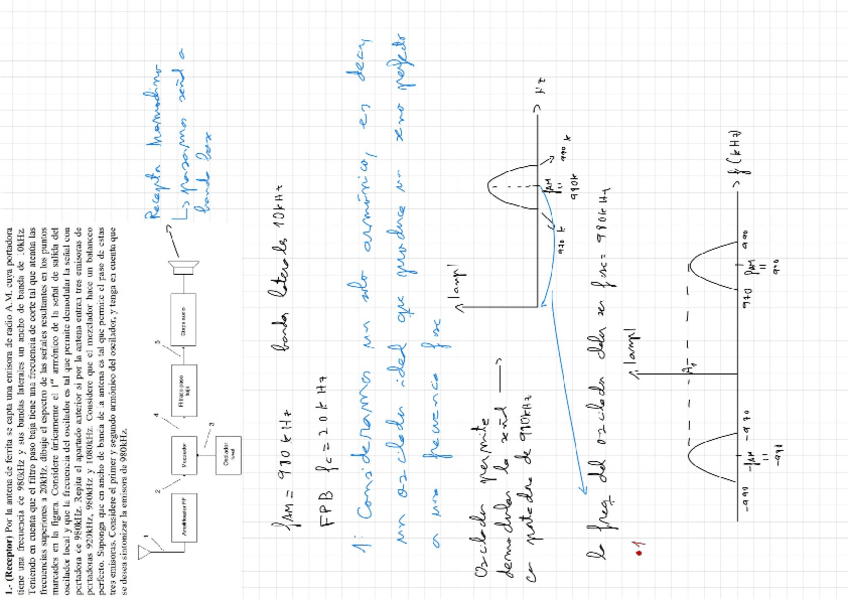 1.- (Receptor) Por la antena de ferrita se capta una emisora de radio A.M. cuya portadora
tiene una frecuencia de 980kHz y sus bandas laterales un ancho de banda de 10kHz.
Teniendo en cuenta que el filtro paso baja tiene una frecuencia de corte tal que atenúa las
frecuencias superiores a 20kHz, dibuje el espectro de las señales resultantes en los puntos
marcados en la figura. Considere únicamente el 1er armónico de la señal de salida del
oscilador local y que la frecuencia del oscilador es tal que permite demodular la señal con
portadora de 980kHz. Repita el apartado anterior si por la antena entran tres emisoras de
portadoras 920kHz, 980kHz y 1080kHz. Considere que el mezclador hace un balanceo
perfecto. Suponga que en ancho de banda de la antena es tal que permite el paso de estas
tres emisoras. Considere el primer y segundo armónico del oscilador, y tenga en cuento que
se desea sintonizar la emisora de 980kHz.
1
Amplificador RF
2
Mezclador
3
Oscilador local
4
Filtro paso bajo
5
Receptor homodino
↳ pasamos señal a
banda base
fAM = 980 kHz
bandas laterales 10kHz
FPB fc = 20 kHz
1: Consideramos un solo armónico, es decir,
un oscilador ideal que produce un seno perfecto
a una frecuencia fosc
Oscilador permite
demodular la señal
con portadora de 980kHz
|amp|
Hz
970 k
fAM
=
980k
990 k
la freq del oscilador debe ser fosc = 980kHz
• 1
|amp|
f(kHz)
-990
-fAM
=
-980
-970
970
fAM
=
980
990